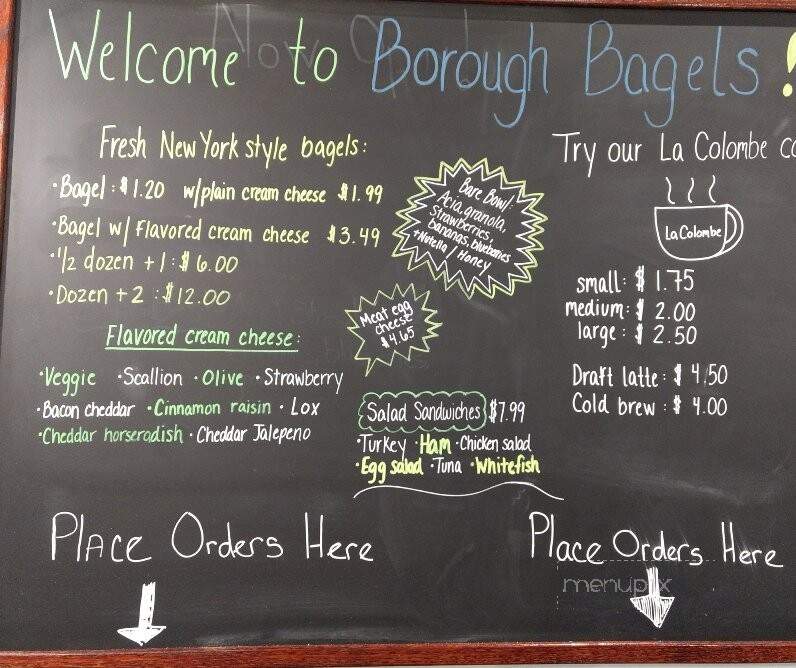 Welcome to Borough Bagels!
Fresh New York style bagels:
·Bagel: $1.20 w/plain cream cheese $1.99
·Bagel w/ Flavored cream cheese $3.49
·1/2 dozen +1: $6.00
·Dozen +2: $12.00
Flavored cream cheese:
·Veggie ·Scallion ·Olive ·Strawberry
·Bacon cheddar ·Cinnamon raisin ·Lox
·Cheddar horseradish ·Cheddar Jalepeno
Bare Bowl:
Acia, granola,
Strawberries,
bananas, blueberries
+Nutella / Honey
Meat egg
cheese
$4.65
Salad Sandwiches $7.99
·Turkey ·Ham ·Chicken salad
·Egg salad ·Tuna ·Whitefish
Try our La Colombe co
La Colombe
small: $1.75
medium: $2.00
large: $2.50
Draft latte: $4.50
Cold brew: $4.00
Place Orders Here
Place Orders Here
menupix